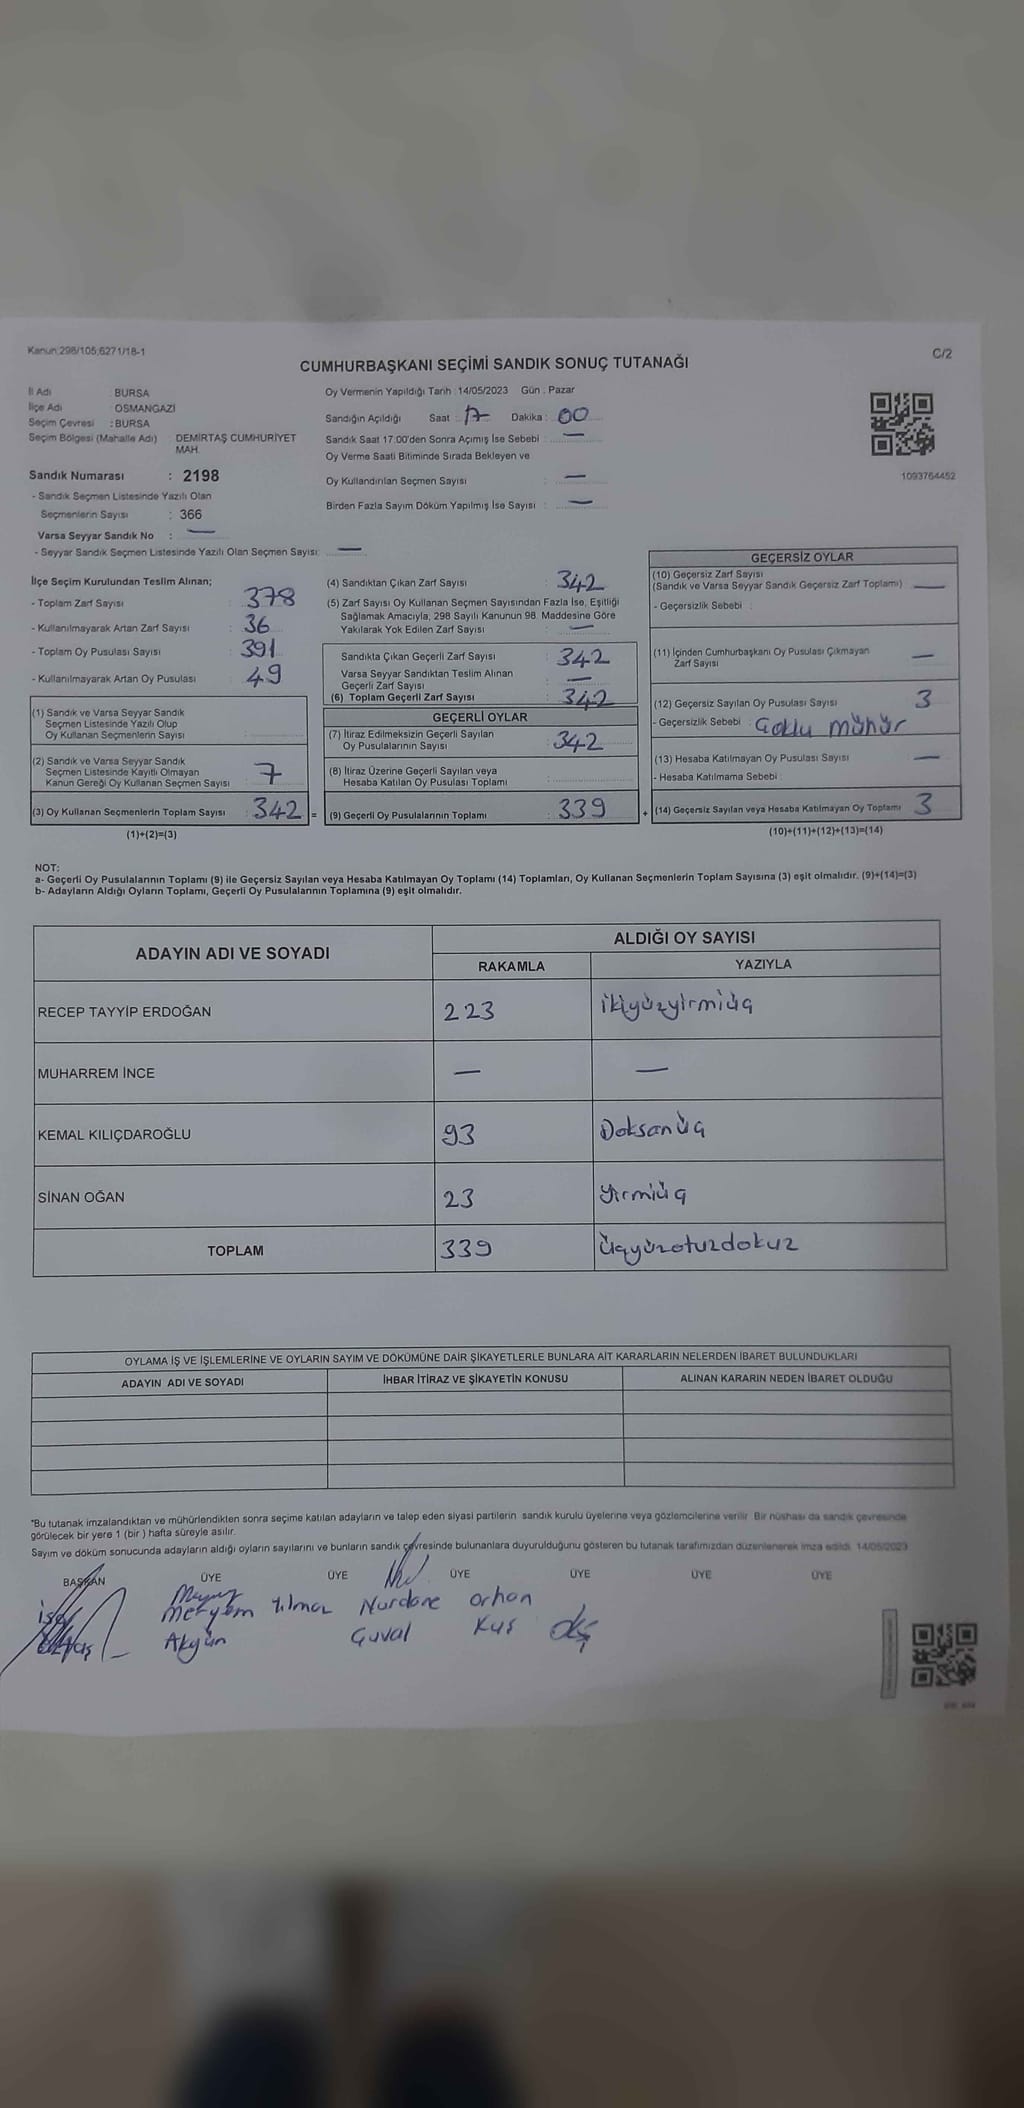 Kanun;298/105;6271/18-1
C/2
CUMHURBAŞKANI SEÇİMİ SANDIK SONUÇ TUTANAĞI
İl Adı : BURSA
İlçe Adı : OSMANGAZİ
Seçim Çevresi : BURSA
Seçim Bölgesi (Mahalle Adı) DEMİRTAŞ CUMHURİYET
MAH.
Sandık Numarası : 2198
- Sandık Seçmen Listesinde Yazılı Olan
Seçmenlerin Sayısı : 366
Varsa Seyyar Sandık No : —
- Seyyar Sandık Seçmen Listesinde Yazılı Olan Seçmen Sayısı: —
Oy Vermenin Yapıldığı Tarih : 14/05/2023 Gün : Pazar
Sandığın Açıldığı Saat : 17 Dakika : 00
Sandık Saat 17:00'den Sonra Açımış İse Sebebi : —
Oy Verme Saati Bitiminde Sırada Bekleyen ve
Oy Kullandırılan Seçmen Sayısı : —
Birden Fazla Sayım Döküm Yapılmış İse Sayısı : —
1093764452
İlçe Seçim Kurulundan Teslim Alınan;
- Toplam Zarf Sayısı : 378
- Kullanılmayarak Artan Zarf Sayısı : 36
- Toplam Oy Pusulası Sayısı : 391
- Kullanılmayarak Artan Oy Pusulası : 49
(1) Sandık ve Varsa Seyyar Sandık
Seçmen Listesinde Yazılı Olup
Oy Kullanan Seçmenlerin Sayısı :
(2) Sandık ve Varsa Seyyar Sandık
Seçmen Listesinde Kayıtlı Olmayan
Kanun Gereği Oy Kullanan Seçmen Sayısı : 7
(3) Oy Kullanan Seçmenlerin Toplam Sayısı : 342 =
(1)+(2)=(3)
(4) Sandıktan Çıkan Zarf Sayısı : 342
(5) Zarf Sayısı Oy Kullanan Seçmen Sayısından Fazla İse, Eşitliği
Sağlamak Amacıyla; 298 Sayılı Kanunun 98. Maddesine Göre
Yakılarak Yok Edilen Zarf Sayısı : —
Sandıkta Çıkan Geçerli Zarf Sayısı : 342
Varsa Seyyar Sandıktan Teslim Alınan
Geçerli Zarf Sayısı : —
(6) Toplam Geçerli Zarf Sayısı : 342
GEÇERLİ OYLAR
(7) İtiraz Edilmeksizin Geçerli Sayılan
Oy Pusulalarının Sayısı : 342
(8) İtiraz Üzerine Geçerli Sayılan veya
Hesaba Katılan Oy Pusulası Toplamı :
(9) Geçerli Oy Pusulalarının Toplamı : 339 +
GEÇERSİZ OYLAR
(10) Geçersiz Zarf Sayısı
(Sandık ve Varsa Seyyar Sandık Geçersiz Zarf Toplamı) : —
- Geçersizlik Sebebi :
(11) İçinden Cumhurbaşkanı Oy Pusulası Çıkmayan
Zarf Sayısı —
(12) Geçersiz Sayılan Oy Pusulası Sayısı 3
- Geçersizlik Sebebi : Çoklu mühür
(13) Hesaba Katılmayan Oy Pusulası Sayısı —
- Hesaba Katılmama Sebebi :
(14) Geçersiz Sayılan veya Hesaba Katılmayan Oy Toplamı 3
(10)+(11)+(12)+(13)=(14)
NOT:
a- Geçerli Oy Pusulalarının Toplamı (9) ile Geçersiz Sayılan veya Hesaba Katılmayan Oy Toplamı (14) Toplamları, Oy Kullanan Seçmenlerin Toplam Sayısına (3) eşit olmalıdır. (9)+(14)=(3)
b- Adayların Aldığı Oyların Toplamı, Geçerli Oy Pusulalarının Toplamına (9) eşit olmalıdır.
ADAYIN ADI VE SOYADI ALDIĞI OY SAYISI
RAKAMLA YAZIYLA
RECEP TAYYİP ERDOĞAN 223 ikiyüzyirmiüç
MUHARREM İNCE — —
KEMAL KILIÇDAROĞLU 93 Doksanüç
SİNAN OĞAN 23 Yirmiüç
TOPLAM 339 Üçyüzotuzdokuz
OYLAMA İŞ VE İŞLEMLERİNE VE OYLARIN SAYIM VE DÖKÜMÜNE DAİR ŞİKAYETLERLE BUNLARA AİT KARARLARIN NELERDEN İBARET BULUNDUKLARI
ADAYIN ADI VE SOYADI İHBAR İTİRAZ VE ŞİKAYETİN KONUSU ALINAN KARARIN NEDEN İBARET OLDUĞU
*Bu tutanak imzalandıktan ve mühürlendikten sonra seçime katılan adayların ve talep eden siyasi partilerin sandık kurulu üyelerine veya gözlemcilerine verilir. Bir nüshası da sandık çevresinde
görülecek bir yere 1 (bir ) hafta süreyle asılır.
Sayım ve döküm sonucunda adayların aldığı oyların sayılarını ve bunların sandık çevresinde bulunanlara duyurulduğunu gösteren bu tutanak tarafımızdan düzenlenerek imza edildi. 14/05/2023
BAŞKAN ÜYE ÜYE ÜYE ÜYE ÜYE ÜYE
Meryem Yılmaz Nurdane Orhan
Akgün Guval Kuş